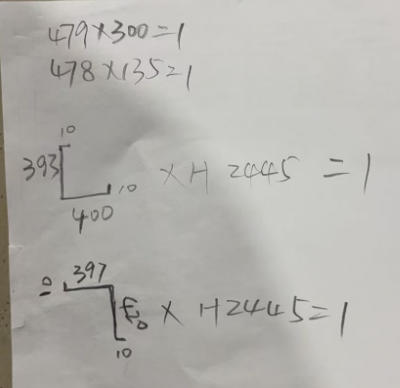 479×300=1
478×135=1
10
393
10 × H 2445 = 1
400
397
10
× H2445=1
10